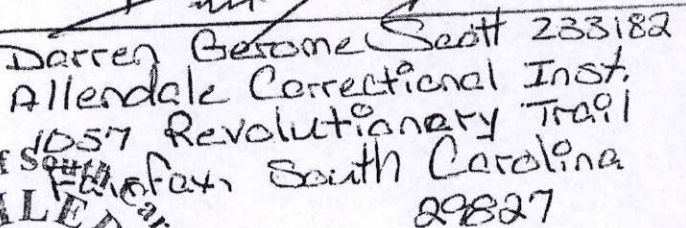 Darren Gerome Scott 233182
Allendale Correctional Inst.
1057 Revolutionary Trail
Fairfax, South Carolina
29827
f South Car
ILED